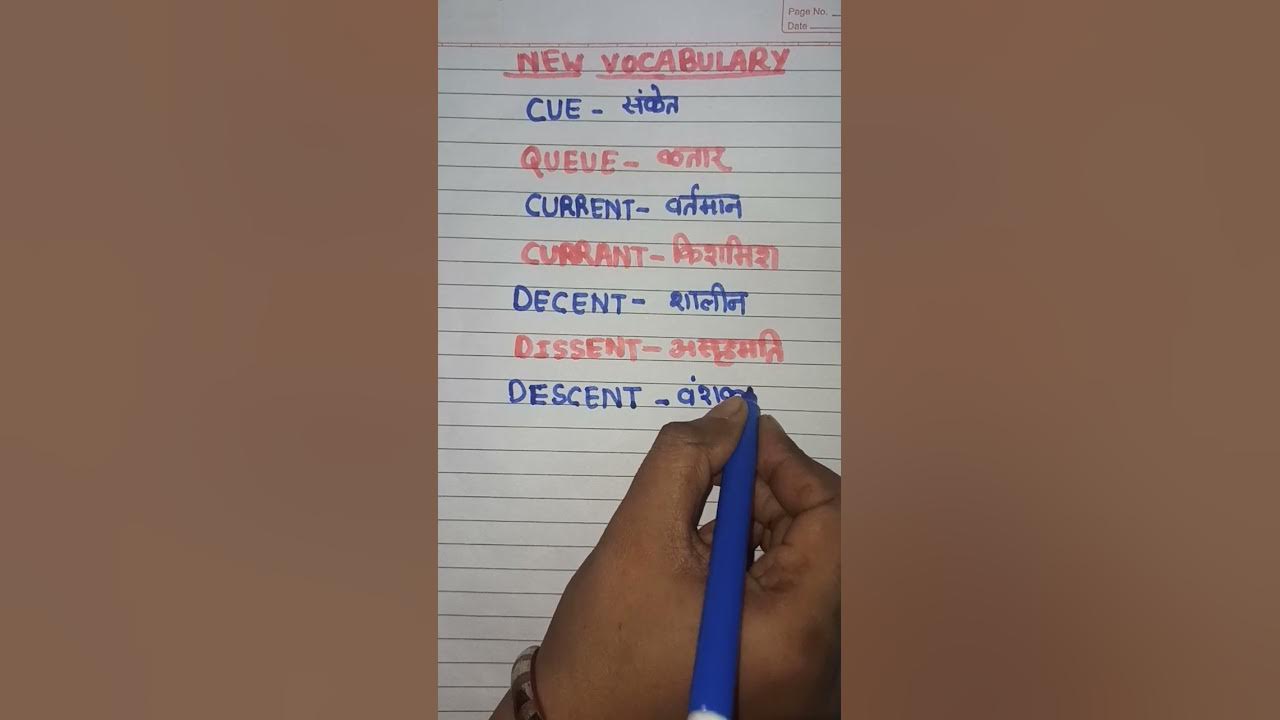 Page No.
Date
NEW VOCABULARY
CUE - संकेत
QUEUE - कतार
CURRENT - वर्तमान
CURRANT - किशमिश
DECENT - शालीन
DISSENT - असहमति
DESCENT -